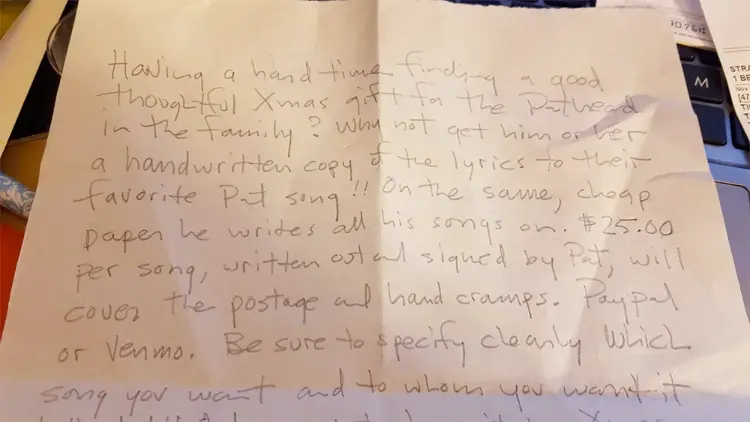 Having a hard time finding a good
thoughtful Xmas gift for the Pathead
in the family? Why not get him or her
a handwritten copy of the lyrics to their
favorite Pat song!! On the same, cheap
paper he writes all his songs on. $25.00
per song, written out and signed by Pat, will
cover the postage and hand cramps. Paypal
or Venmo. Be sure to specify clearly which
song you want and to whom you want it
M
STRA
1 BE
Nov